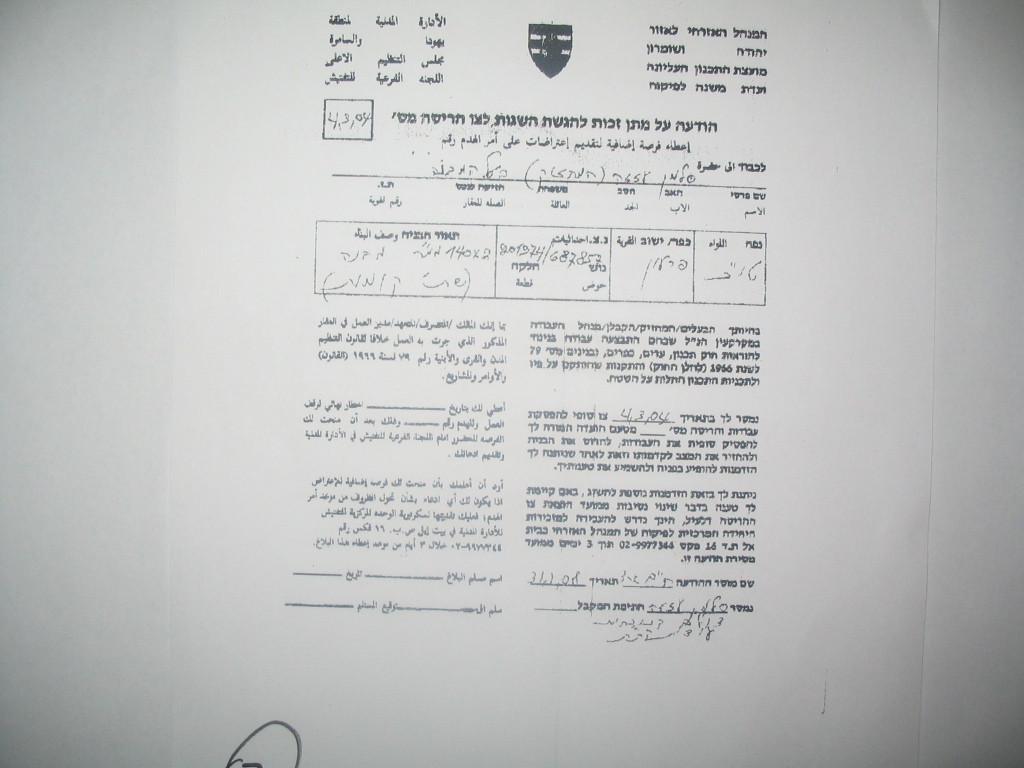 המנהל האזרחי לאזור
יהודה ושומרון
מועצת התכנון העליונה
ועדת משנה לפיקוח
الأدارة المدنية لمنطقة
يهودا والسامرة
مجلس التنظيم الاعلى
اللجنه الفرعية للتفتيش
הודעה על מתן זכות להגשת השגות לצו הריסה מס'
4.3.04
إعطاء فرصة إضافية لتقديم إعتراضات على أمر الهدم رقم
לכבוד الى حضرة
שם פרטי האב הסב משפחה הזיקה לנכס ת.ז.
الاسم الاب الجد العائلة الصله للعقار رقم الهوية
נפה اللواء כפר/ ישוב القرية נ.צ. احداثيات תאור הבניה وصف البناء
201974/687857
גוש חלקה
حوض قطعة
פרעון
מבנה
(שתי קומות)
בהיותך הבעלים/המחזיק/הקבלן/מנהל העבודה
במקרקעין הנ"ל שבהם התבצעה עבודה בניגוד
להוראות חוק תכנון, ערים, כפרים, ובניינים מס' 79
לשנת 1966 (להלן החוק) והתקנות שהותקנו על פיו
ולתכניות התכנון החלות על השטח.
بما إنك المالك /المتصرف/المتعهد/مدير العمل في العقار
المذكور الذي جرت به العمل خلافا لقانون التنظيم
المدن والقرى والأبنية رقم ٧٩ لسنة ١٩٦٦ (القانون)
والأوامر والمشاريع.
נמסר לך בתאריך 4.3.04 צו סופי להפסקת
עבודות והריסה מס' מטעם הועדה המורה לך
להפסיק סופית את העבודות, להרוס את הבניה
ולהחזיר את המצב לקדמותו וזאת לאחר שניתנה לך
הזדמנות להופיע בפניה ולהשמיע את טענותיך.
أعطي لك بتاريخ اخطار نهائي لوقف
العمل وللهدم رقم وذلك بعد أن منحت لك
الفرصه للحضور امام اللجنة الفرعية للتفتيش في الأدارة المدنية
وتقديم ادعائك.
ניתנת לך בזאת הזדמנות נוספת להשיג, באם קיימת
לך טענה בדבר שינוי נסיבות ממועד הוצאת צו
ההריסה דלעיל, הינך נדרש להעבירה למזכירות
היחידה המרכזית לפיקוח של המנהל האזרחי בבית
אל ת.ד 16 פקס 02-9977344 תוך 3 ימים ממועד
מסירת הודעה זו.
أود أن أعلمك بأن منحت لك فرصه إضافية للإعتراض
اذا يكون لك أي ادعاء بشأن تحول الظروف من موعد أمر
الهدم، فعليك تقديمها لسكرتيرية الوحده المركزية للتفتيش
للأدارة المدنية في بيت إيل ص.ب. ١٦ فكس رقم
٠٢-٩٩٧٧٣٤٤ خلال ٣ أيام من موعد إعطاء هذا البلاغ.
שם מוסר ההודעה תאריך
اسم مسلم البلاغ تاريخ
נמסר חתימת המקבל
سلم الى توقيع المستلم